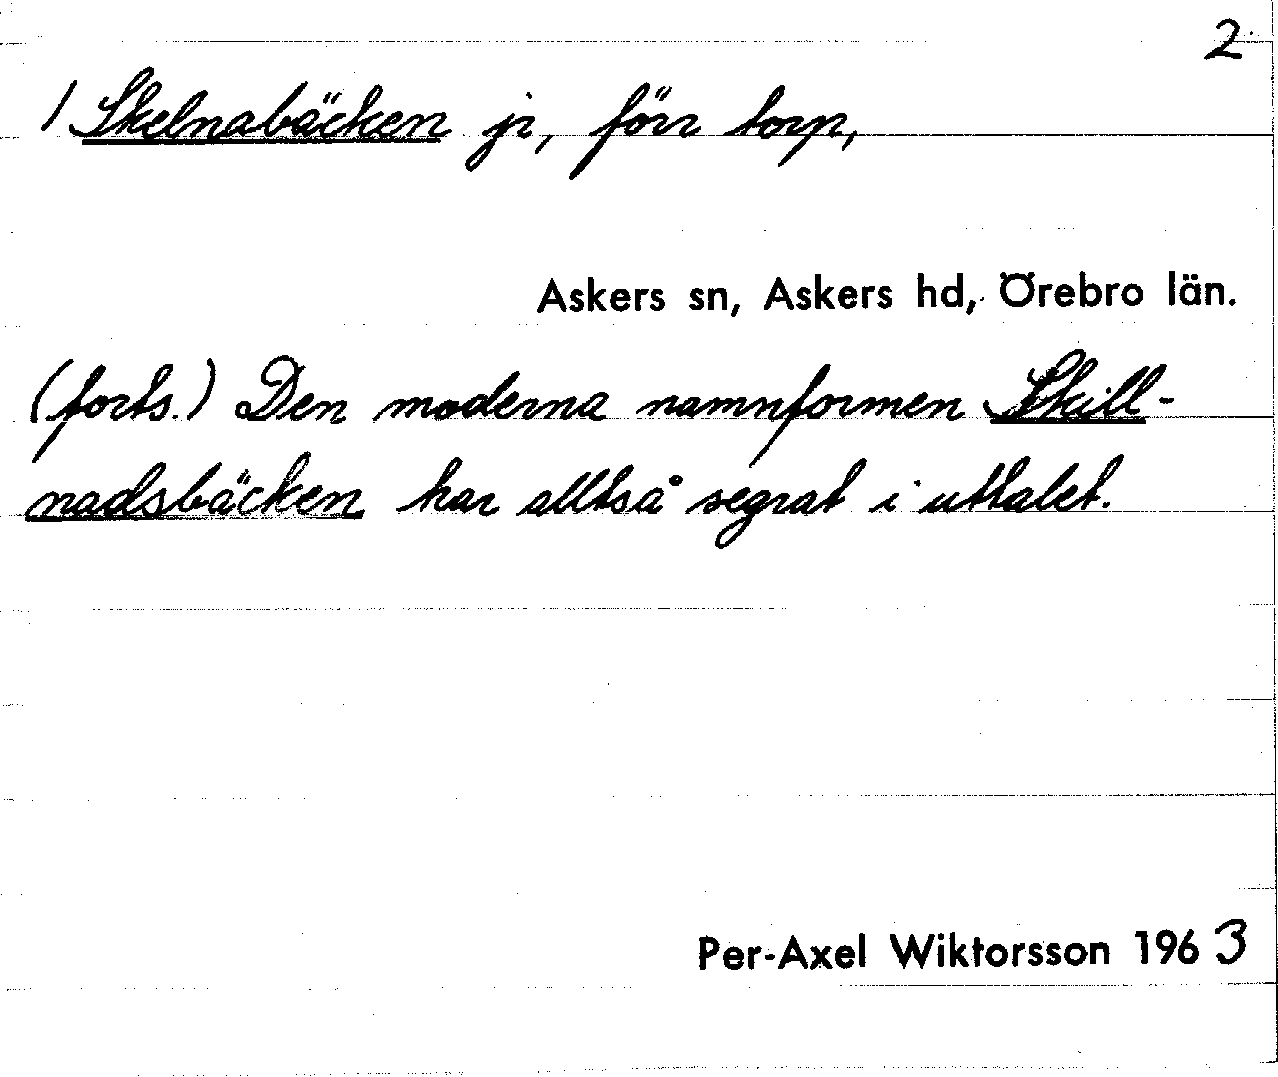 2.
/ Skelnabäcken jr, förr torp,
Askers sn, Askers hd, Örebro län.
(forts.) Den moderna namnformen Skill-
nadsbäcken har alltså segrat i uttalet.
Per-Axel Wiktorsson 1963